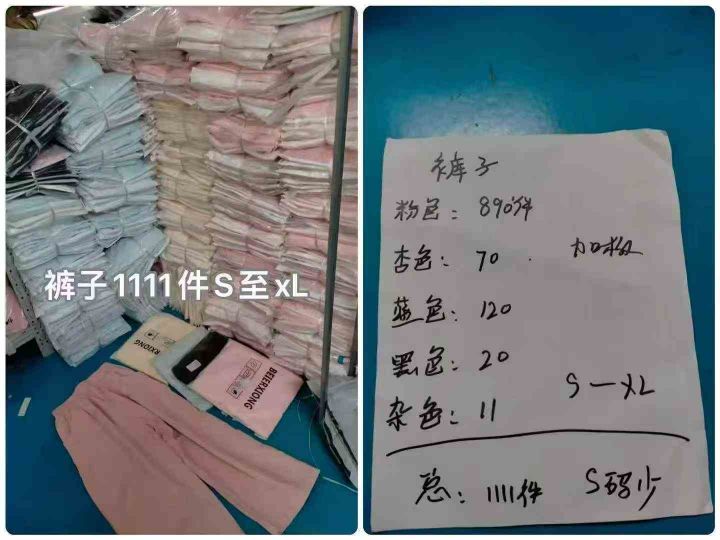 裤子1111件S至xL
BEIERXIONG
裤子
粉色：890件
杏色：70
蓝色：120
黑色：20
S—XL
杂色：11
总：1111件 S码少